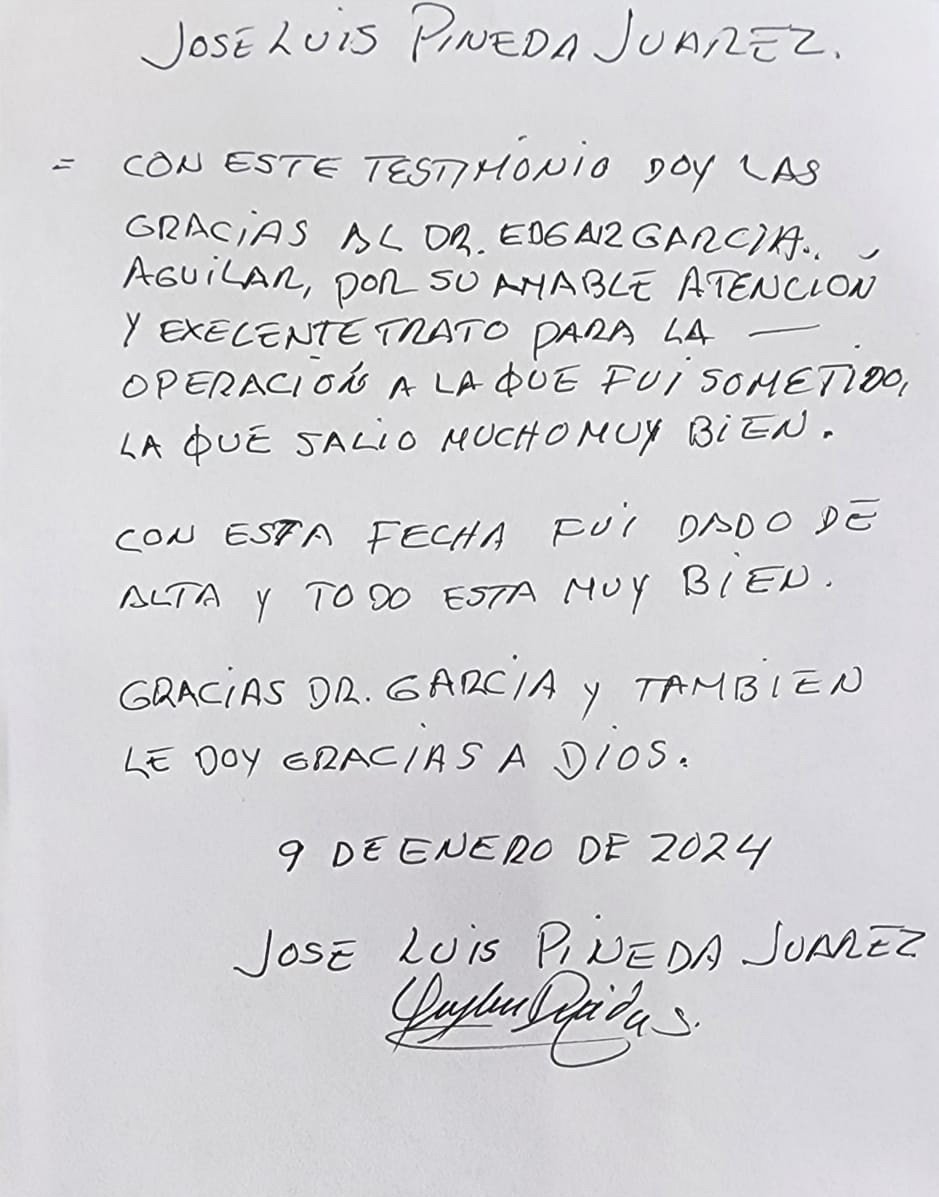 JOSE LUIS PINEDA JUAREZ.
= CON ESTE TESTIMONIO DOY LAS
GRACIAS AL DR. EDGAR GARCIA.
AGUILAR, POR SU AMABLE ATENCIÓN
Y EXELENTE TRATO PARA LA —
OPERACIÓN A LA QUE FUI SOMETIDO,
LA QUE SALIO MUCHO MUY BIEN.
CON ESTA FECHA FUI DADO DE
ALTA Y TODO ESTA MUY BIEN.
GRACIAS DR. GARCIA Y TAMBIEN
LE DOY GRACIAS A DIOS.
9 DE ENERO DE 2024
JOSE LUIS PINEDA JUAREZ